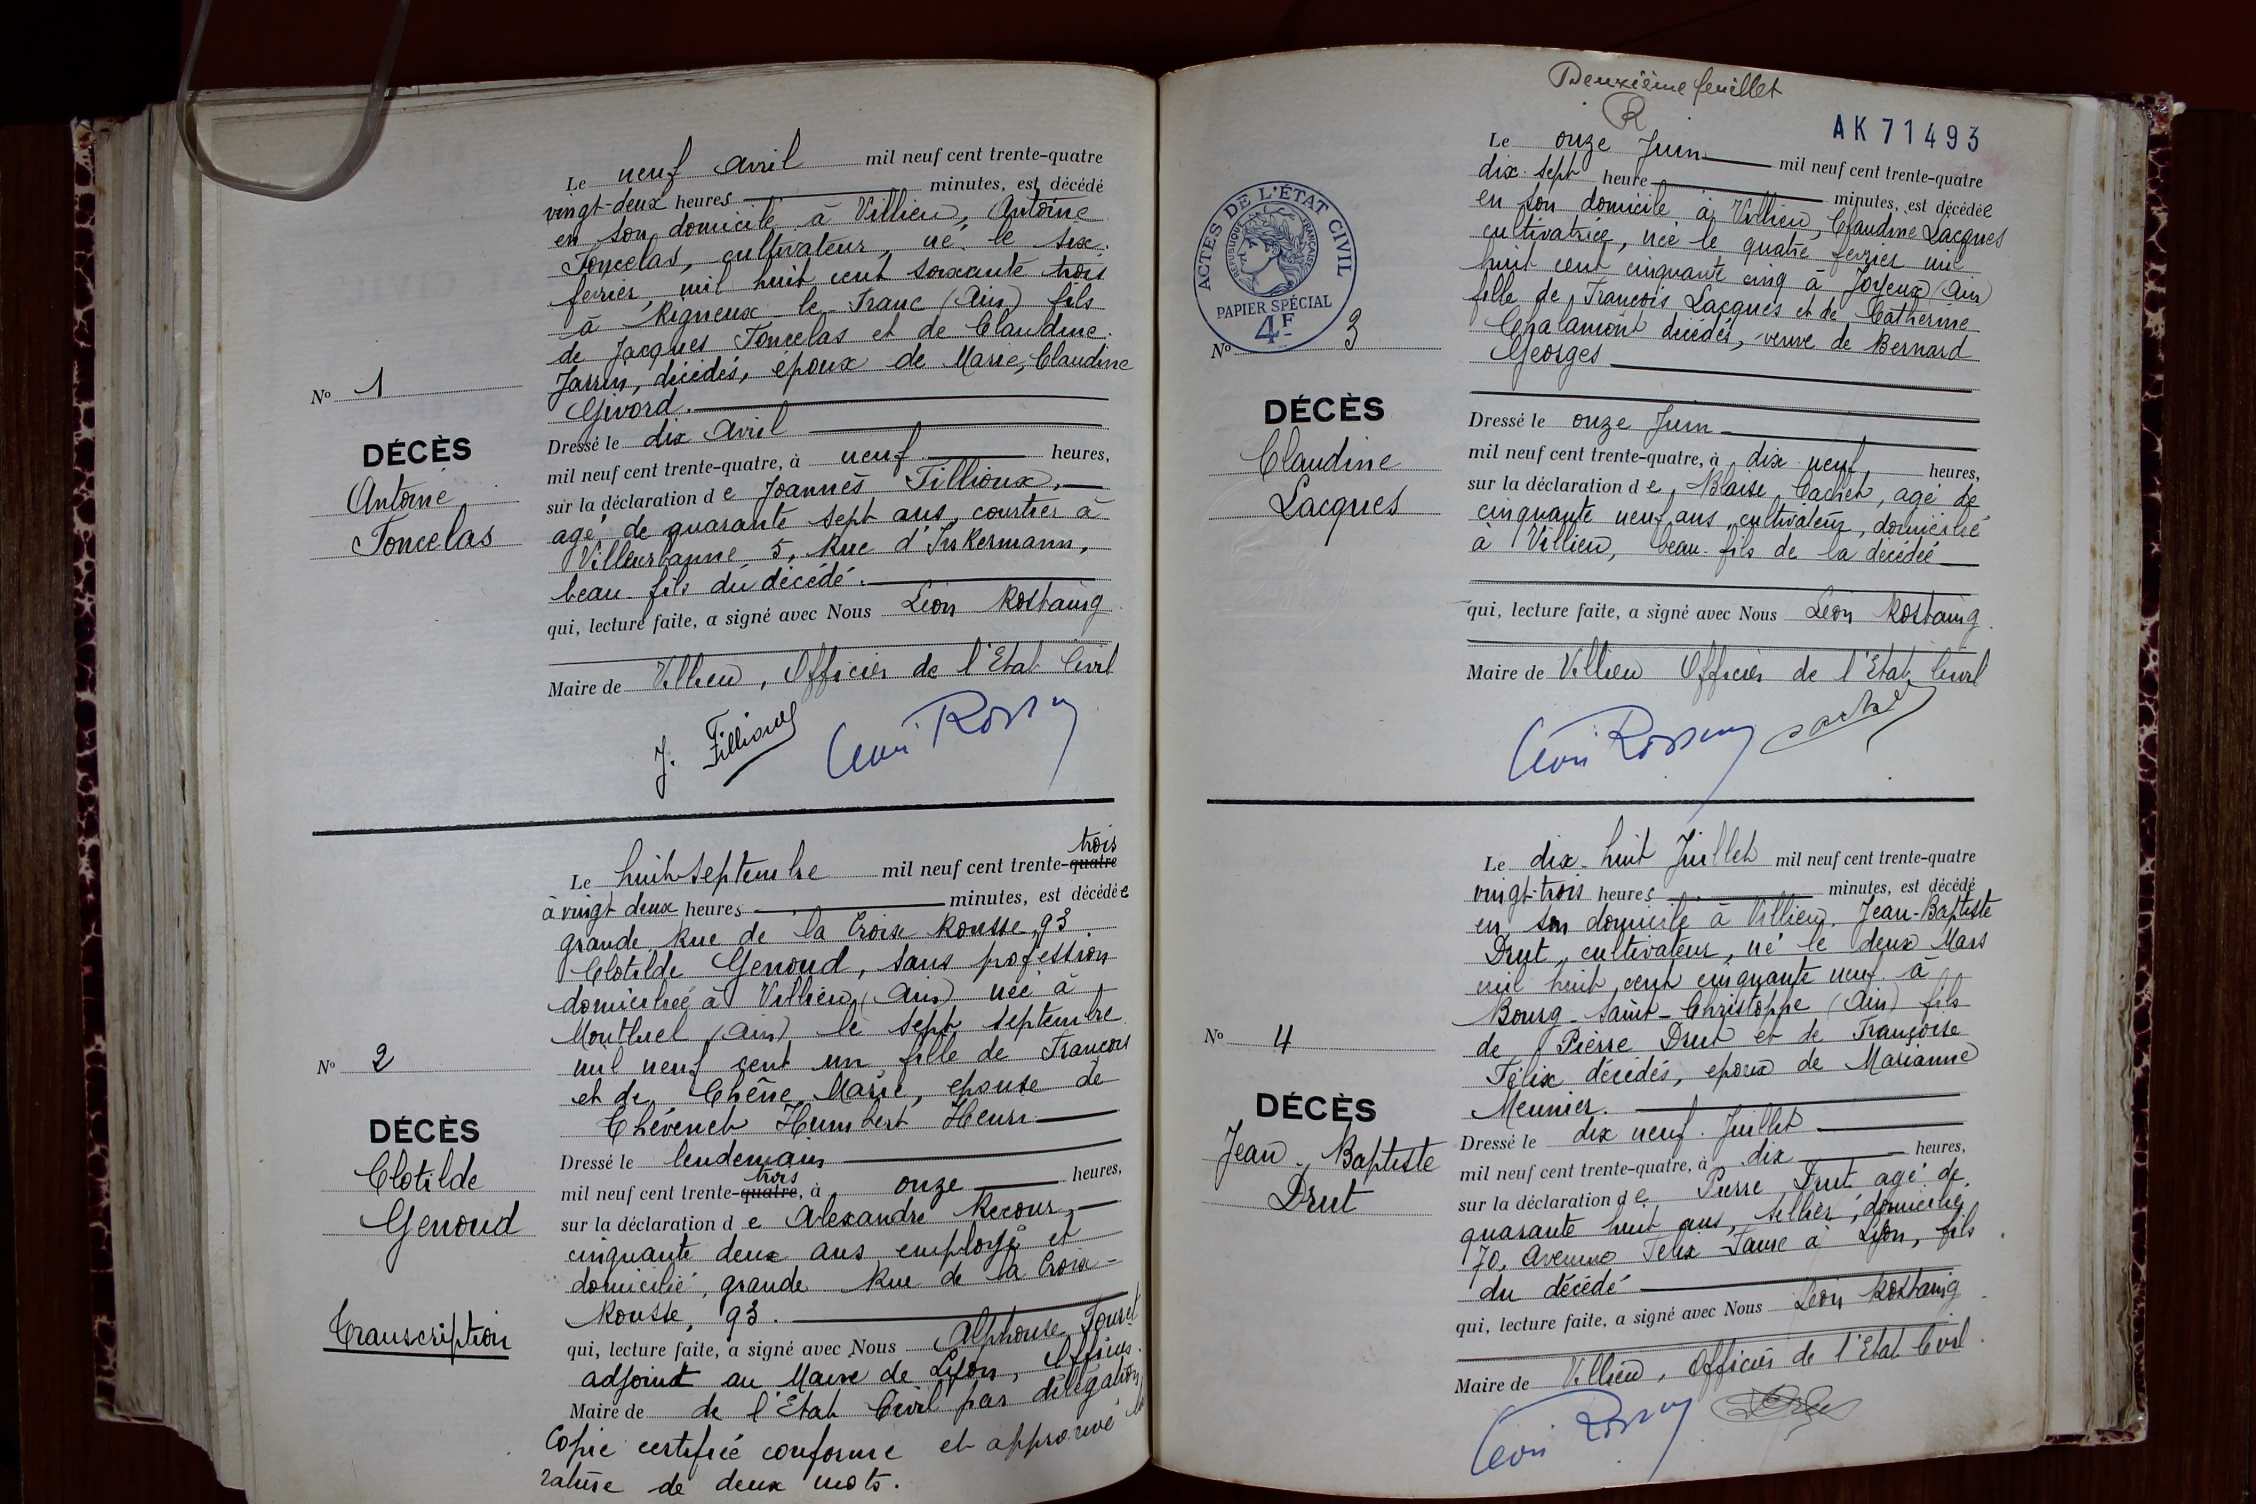 Le neuf avril mil neuf cent trente-quatre
vingt-deux heures minutes, est décédé
en son domicile à Villieu, Antoine
Joncelas, cultivateur, né le six
fevrier, mil huit cent soixante trois
à Rigneux-le-Franc (Ain) fils
de Jacques Joncelas et de Claudine
Jarrin, décédés, époux de Marie, Claudine
Givord.
Dressé le dix Avril
mil neuf cent trente-quatre, à neuf heures,
sur la déclaration de Joannès Fillioux,
agé de quarante sept ans, courtier à
Villeurbanne 5, Rue d'Inkermann,
beau-fils du décédé.
qui, lecture faite, a signé avec Nous Léon Rostaing
Maire de Villieu, Officier de l'Etat Civil
J. Fillioux
Nº 1
DÉCÈS
Antoine
Joncelas
Le huit septembre mil neuf cent trente-quatre trois
à vingt deux heures minutes, est décédée
grande Rue de la Croix Rousse, 93
Clotilde Genoud, sans profession
domiciliée à Villieu (Ain) née à
Montluel (Ain) le sept septembre
mil neuf cent un, fille de François
et de Chêne Marie, épouse de
Chévenet Humbert Henri
Dressé le lendemain
mil neuf cent trente-quatre trois, à onze heures,
sur la déclaration de Alexandre Recour,
cinquante deux ans employé et
domicilié, grande Rue de la Croix-
Rousse, 93.
qui, lecture faite, a signé avec Nous Alphonse
adjoint au Maire de Lyon, Officier
Maire de de l'Etat Civil par délégation
Copie certifiée conforme et approuvé la
rature de deux mots.
Nº 2
DÉCÈS
Clotilde
Genoud
Transcription
Deuxième feuillet
AK 71493
Le onze Juin mil neuf cent trente-quatre
dix-sept heure minutes, est décédée
en son domicile à Villieu, Claudine Lacques
cultivatrice, née le quatre fevrier mil
huit cent cinquante cinq à Joyeux (Ain)
fille de François Lacques et de Catherine
Chalamont décédés, veuve de Bernard
Georges
ACTES DE L'ÉTAT CIVIL
RÉPUBLIQUE FRANÇAISE
PAPIER SPÉCIAL
4F
Nº 3
DÉCÈS
Claudine
Lacques
Dressé le onze Juin
mil neuf cent trente-quatre, à dix neuf heures,
sur la déclaration de Blaise Cachet, agé de
cinquante neuf ans, cultivateur, domicilié
à Villieu, beau-fils de la décédée
qui, lecture faite, a signé avec Nous Léon Rostaing
Maire de Villieu Officier de l'Etat Civil
Le dix-huit Juillet mil neuf cent trente-quatre
vingt-trois heures minutes, est décédé
en son domicile à Villieu, Jean-Baptiste
Drut, cultivateur, né le deux Mars
mil huit cent cinquante neuf à
Bourg-Saint-Christophe (Ain) fils
de Pierre Drut et de Françoise
Félix décédés, epoux de Marianne
Meunier.
Dressé le dix neuf Juillet
mil neuf cent trente-quatre, à dix heures,
sur la déclaration de Pierre Drut agé de
quarante huit ans, sellier, domicilié
70, Avenue Félix-Faure à Lyon, fils
du décédé
qui, lecture faite, a signé avec Nous Léon Rostaing
Maire de Villieu, Officier de l'Etat Civil
Nº 4
DÉCÈS
Jean-Baptiste
Drut